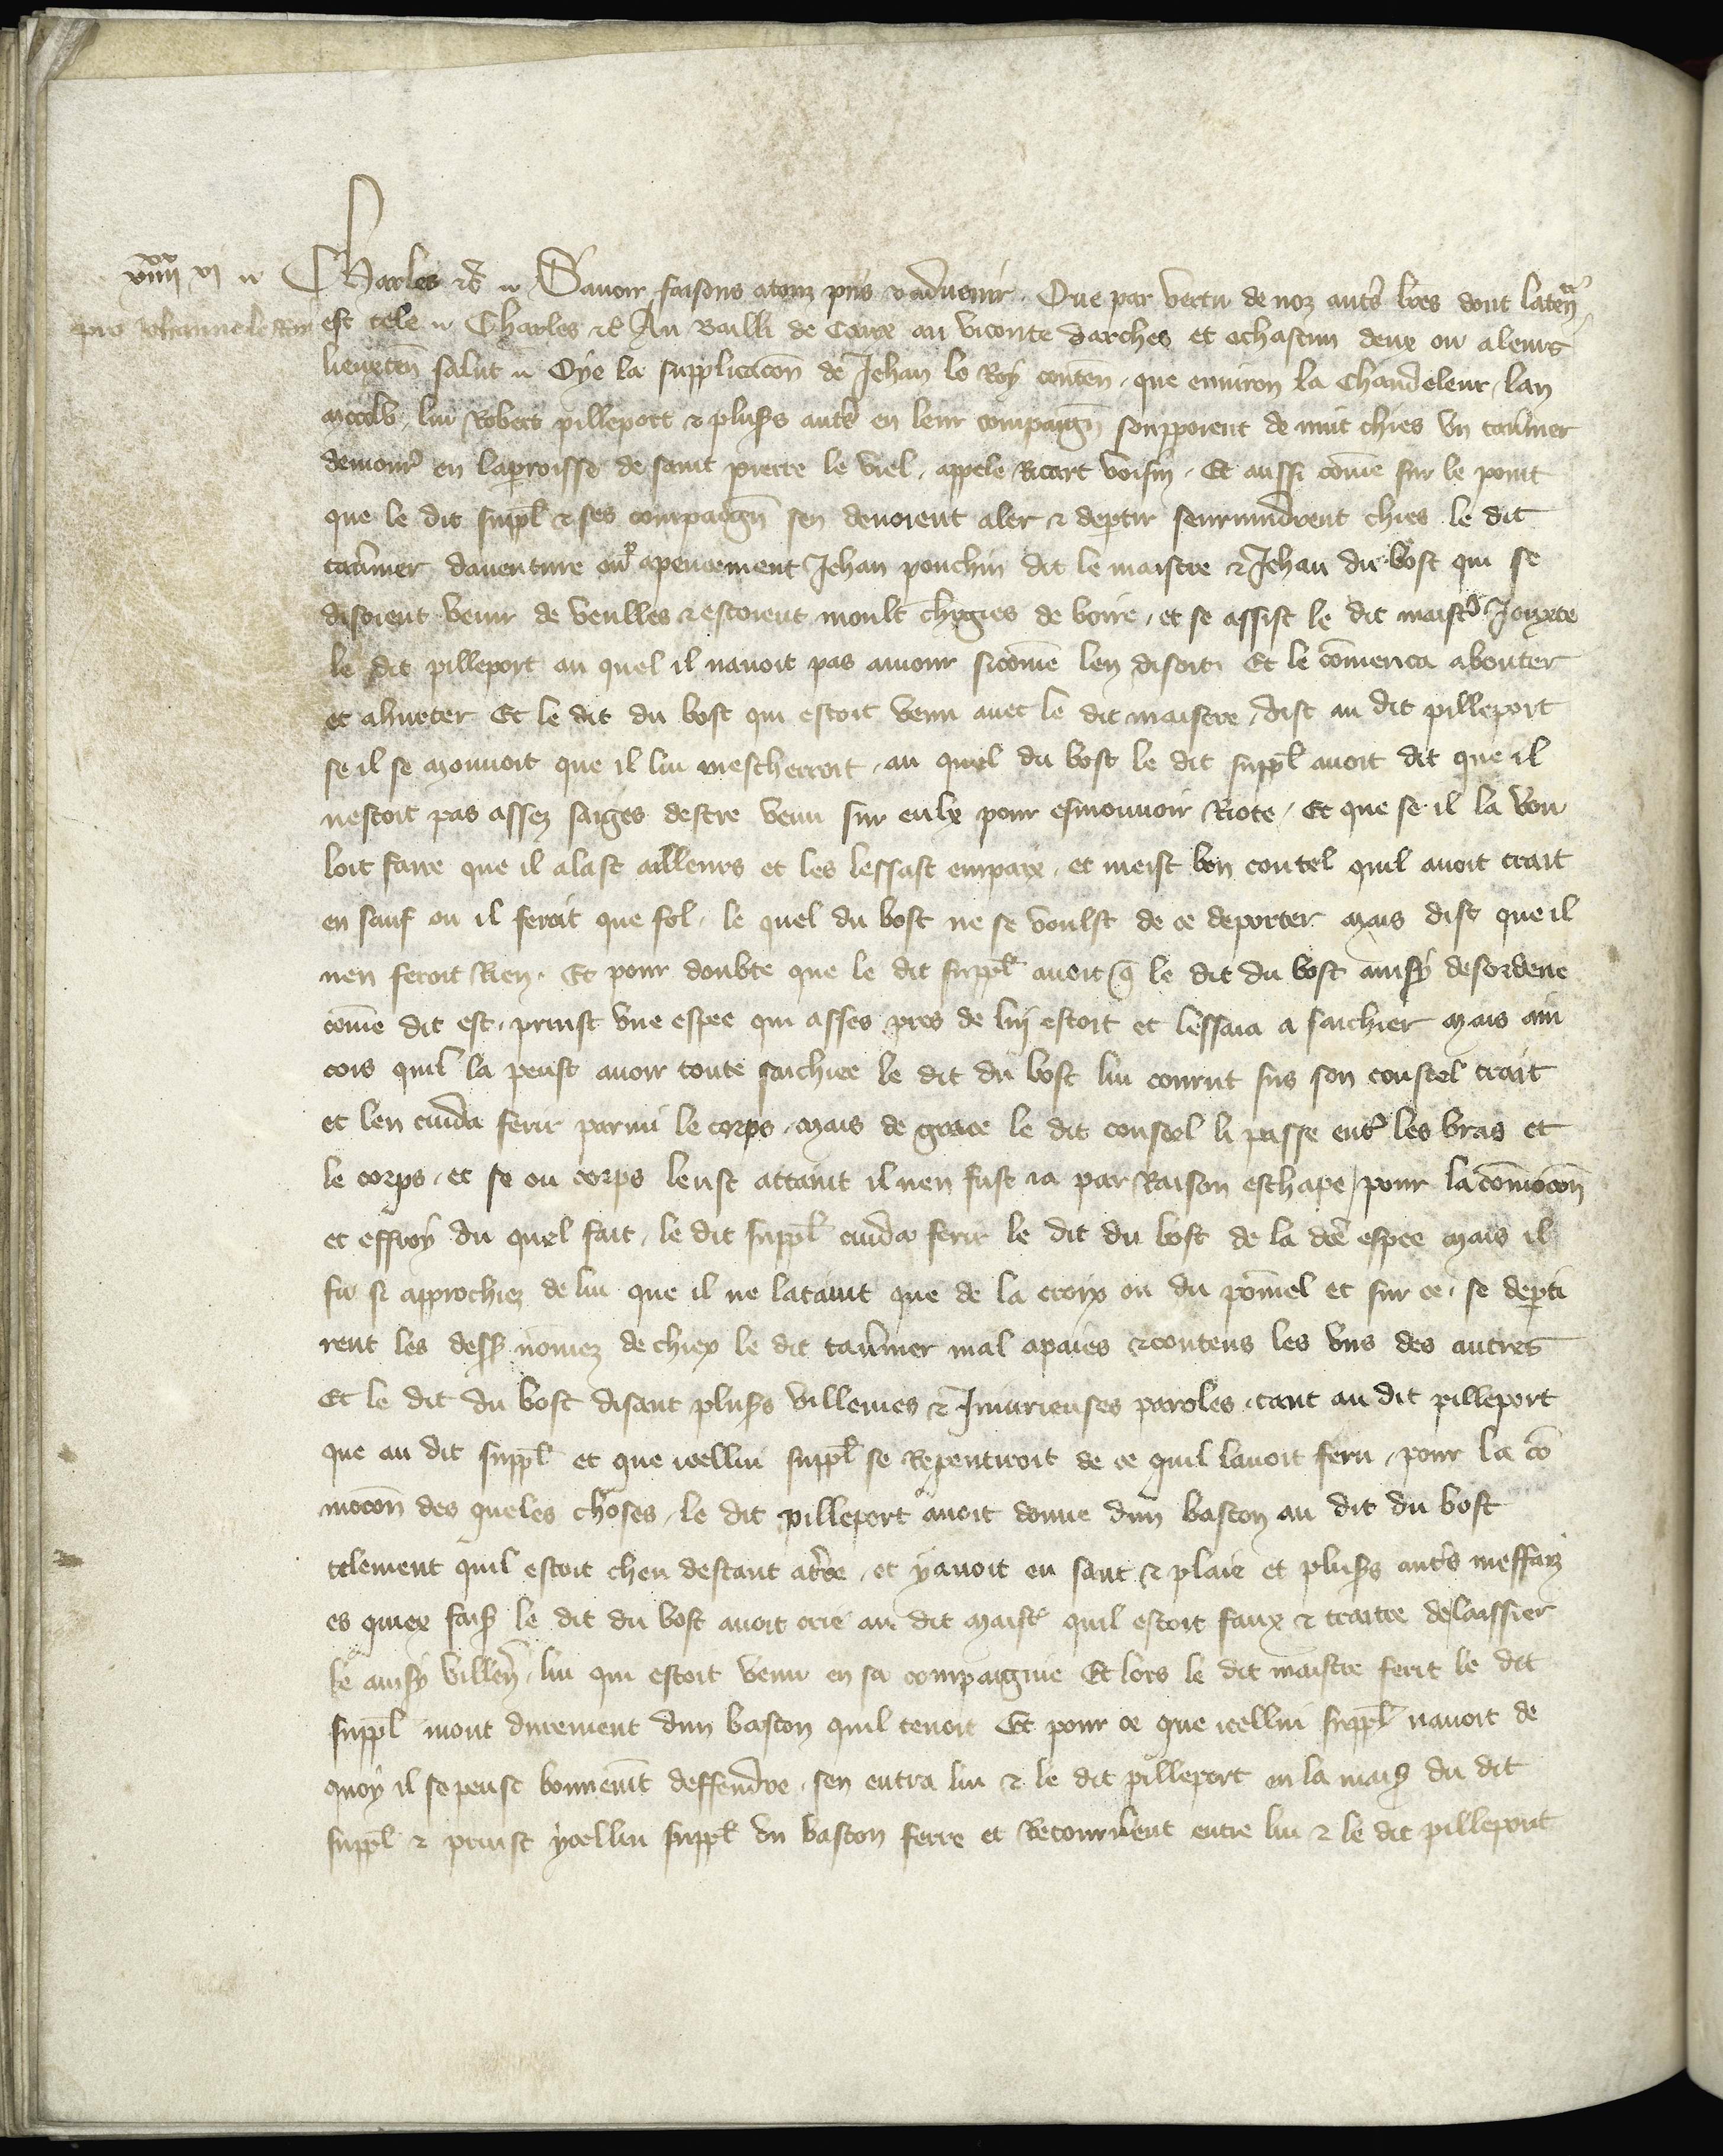 iiiixx vi
pro Johanne le Roy
Charles etc Savoir faisons a touz pñs & advenir Que par vertu de noz autrs lrẽs dont la teneur
est tele Charles etc Au Bailli de Caux au viconte darches et a chascun deux ou a leurs
lieuxten̄ salut Oye la supplicacōn de Jehan le Roy conten̄ que environ la Chandeleur lan
mccclv lui Robert pilleport & plus̄s autrs en leur compaign̄ souppoient de nuit chies un tav̄nier
demour̄ en la p̄roisse de saint pierre le viel appele Ricart voisin Et aussi com̄e sur le point
que le dit suppl̄ & ses compaign̄ sen devoient aler & dep̄tir seurvindrent chies le dit
tav̄nier daventure ou apenceement Jehan ponchin dit le maistre & Jehan du bost qui se
disoient venir de veulles & estoient moult ch̄gies de boire et se assist le dit maistr̄ Jouxte
le dit pilleport au quel il navoit pas amour si com̄e len disoit Et le com̄enca a bouter
et ahurter Et le dit du bost qui estoit venu avec le dit maistre dist au dit pilleport
se il se mouvoit que il lui mescherroit au quel du bost le dit suppl̄ avoit dit que il
nestoit pas assez saiges destre venu sur eulx pour esmouvoir Riote Et que se il la vou
loit faire que il alast ailleurs et les lessast en paix et meist un coutel quil avoit trait
en sauf ou il feroit que fol le quel du bost ne se voulst de ce deporter mais dist que il
nen feroit Rien Et pour doubte que le dit suppl̄ avoit q̄ le dit du bost ainsy desordene
com̄e dit est prinst une espee qui asses pres de luy estoit et lessaia a saichier mais ain
cois quil la peust avoir toute saichiee le dit du bost lui courut sus son coustel trait
et len cuida ferir parmi le corps mais de grace le dit coustel li passe entr̄ les bras et
le corps et se ou corps leust attaint il nen fust ia par Raison eschape pour la com̄ocōn
et effroy du quel fait le dit suppl̄ cuida ferir le dit du bost de la dcē espee mais il
fu si approchiez de lui que il ne lataint que de la croix ou du pom̄el et sur ce se dep̄ti
rent les dess̄ nom̄ez de chiex le dit tav̄nier mal apaies & contens les uns des autres
Et le dit du bost disant plus̄s villenies & Iniurieuses paroles tant au dit pilleport
que au dit suppl̄ et que icellui suppl̄ se Repentiroit de ce quil lavoit feru pour la cō
mocōn des queles choses le dit pilleport avoit donne dun baston au dit du bost
telement quil estoit cheu destant a t̄rre et y avoit eu sanc & plaie et plus̄s autrs meffaiz
es quiex fais̄ le dit du bost avoit crie au dit maistr̄ quil estoit faux & traitre de laissier
le ainsy villen̄ lui qui estoit venu en sa compaignie Et lors le dit maistre ferit le dit
suppl̄ mont durement dun baston quil tenoit Et pour ce que icellui suppl̄ navoit de
quoy il se peust bonnem̄t deffendre sen entra lui & le dit pilleport en la mais̄ du dit
suppl̄ & prinst ycellui suppl̄ un baston ferre et Retourn̄ent entre lui & le dit pilleport